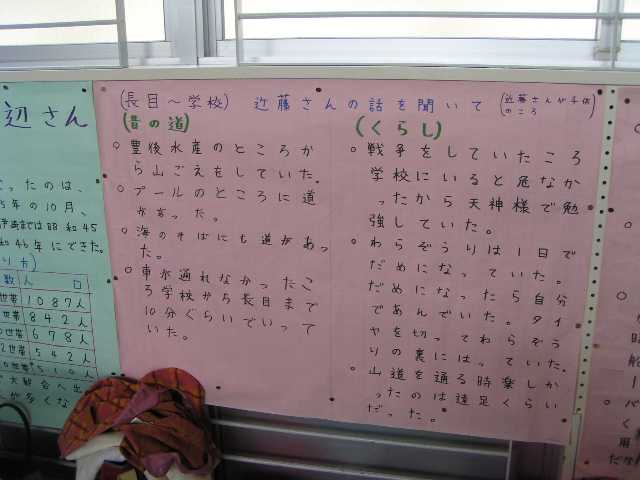 辺さん
ったのは、
5年の10月、
では昭和45
和46年にできた。
数 人 口
世帯 1087人
世帯 842人
世帯 678人
2世帯 542人
世帯 510人
が多くな
(長目〜学校) 近藤さんの話を聞いて (近藤さんが子供のころ)
(昔の道)
○豊後水産のところか
ら山ごえをしていた。
○プールのところに道
があった。
○海のそばにも道があっ
た。
○車が通れなかったこ
ろ学校から長目まで
10分ぐらいでいって
いた。
(くらし)
○戦争をしていたころ
学校にいると危なか
ったから天神様で勉
強していた。
○わらぞうりは1日で
だめになっていた。
だめになったら自分
であんでいた。タイ
ヤを切ってわらぞう
りの裏にはっていた。
○山道を通る時楽しか
ったのは遠足くらい
だった。